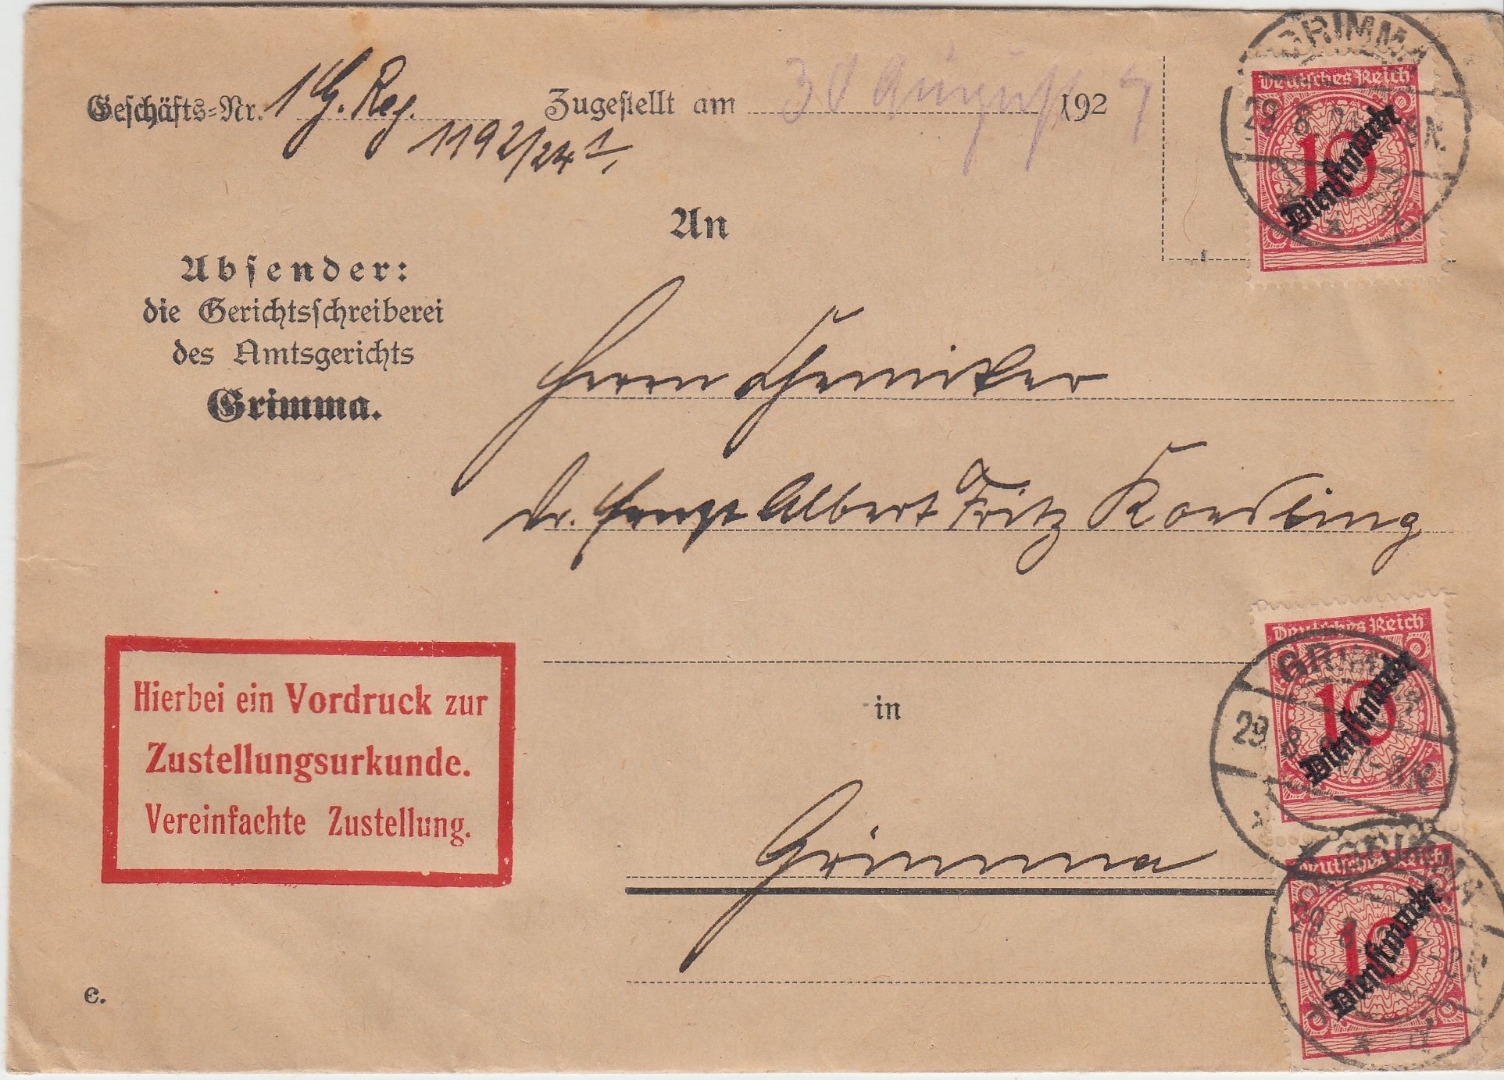 Geschäfts-Nr. 1 G. Reg. 1192/24
Zugestellt am 30 August 192 4
An
Absender:
die Gerichtsschreiberei
des Amtsgerichts
Grimma.
Herrn Chemiker
Dr. Albert Fritz
in
Grimma
Hierbei ein Vordruck zur
Zustellungsurkunde.
Vereinfachte Zustellung.
e.
GRIMMA
29.8.24
Deutsches Reich
10
Dienstmarke
GRIMMA
29.8
Deutsches Reich
10
Dienstmarke
GRIMMA
29
Deutsches Reich
10
Dienstmarke